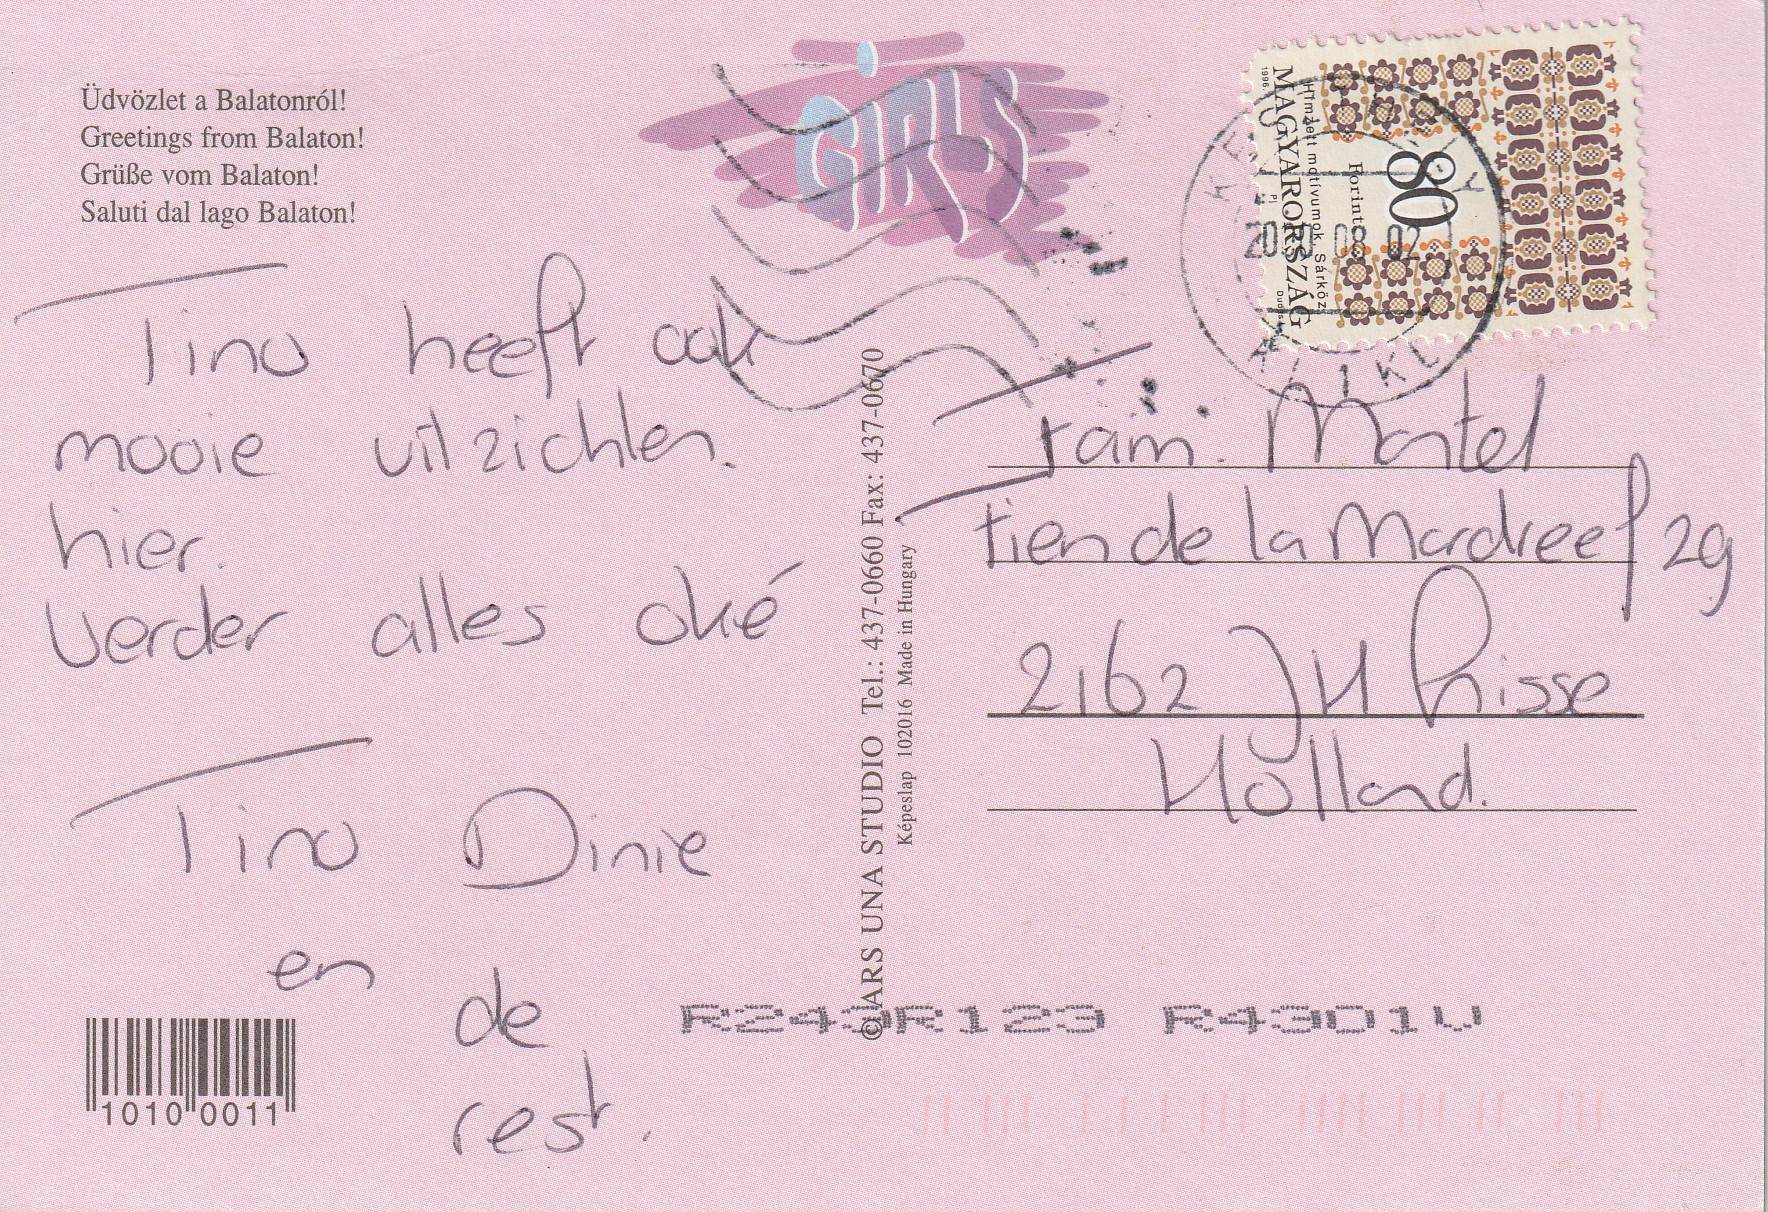 Üdvözlet a Balatonról!
Greetings from Balaton!
Grüße vom Balaton!
Saluti dal lago Balaton!
GiRLS
1996
MAGYARORSZÁG
Hímzett motívumok, Sárköz
Forint
80
08 02
Tino heeft ook
mooie uitzichten.
hier.
Verder alles oké
Tino Dinie
en
de
rest.
©ARS UNA STUDIO Tel.: 437-0660 Fax: 437-0670
Képeslap 102016 Made in Hungary
Fam. Martel
Tien de la Mardreef 29
2162 JH Lisse
Holland.
R243R123 R43D1U
1010 0011